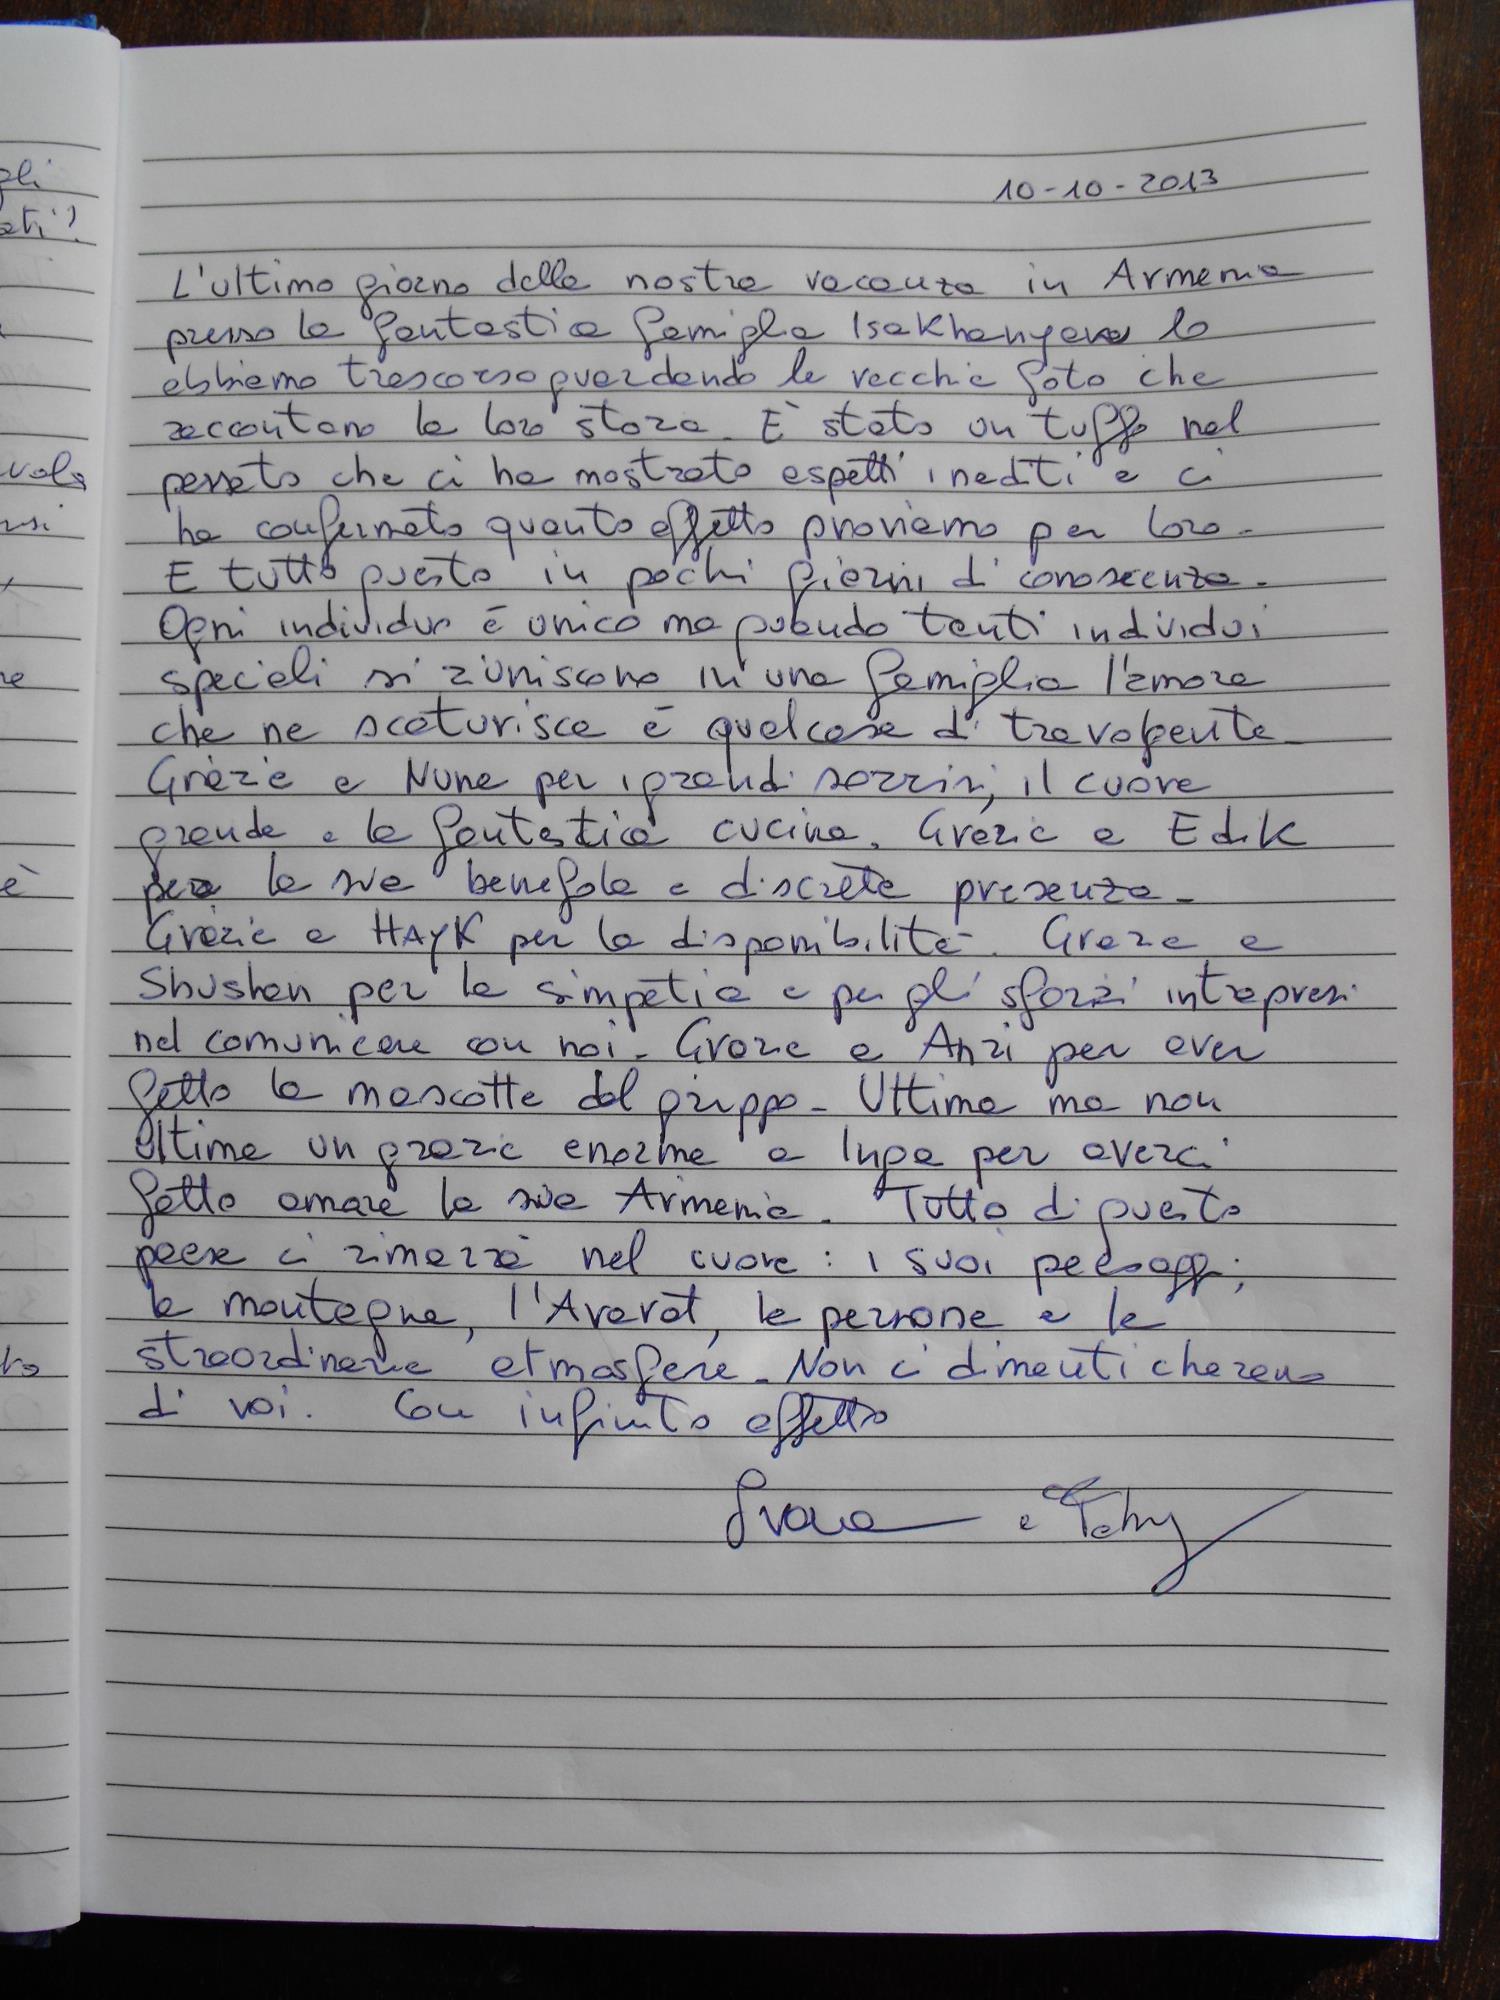 gli
ati?
vola
10-10-2013
L'ultimo giorno della nostra vacanza in Armenia
presso la fantastica famiglia Isakhanyan lo
abbiamo trascorso guardando le vecchie foto che
raccontano la loro storia. E' stato un tuffo nel
passato che ci ha mostrato aspetti inediti e ci
ha confermato quanto affetto proviamo per loro.
E tutto questo in pochi giorni di conoscenza.
Ogni individuo è unico ma quando tanti individui
speciali si riuniscono in una famiglia l'amore
che ne scaturisce è qualcosa di travolgente.
Grazie a Nune per i grandi sorrisi, il cuore
grande e la fantastica cucina. Grazie a Edik
per la sua benefola e discreta presenza.
Grazie a HAYK per la disponibilità. Grazie a
Shushan per la simpatia e per gli sforzi intrapresi
nel comunicare con noi. Grazie a Anri per aver
fatto la mascotte del gruppo. Ultima ma non
ultima un grazie enorme a Inga per averci
fatto amare la sua Armenia. Tutto di questo
paese ci rimarrà nel cuore: i suoi paesaggi,
le montagne, l'Ararat, le persone e le
straordinarie atmosfere. Non ci dimenticheremo
di voi. Con infinito affetto
e